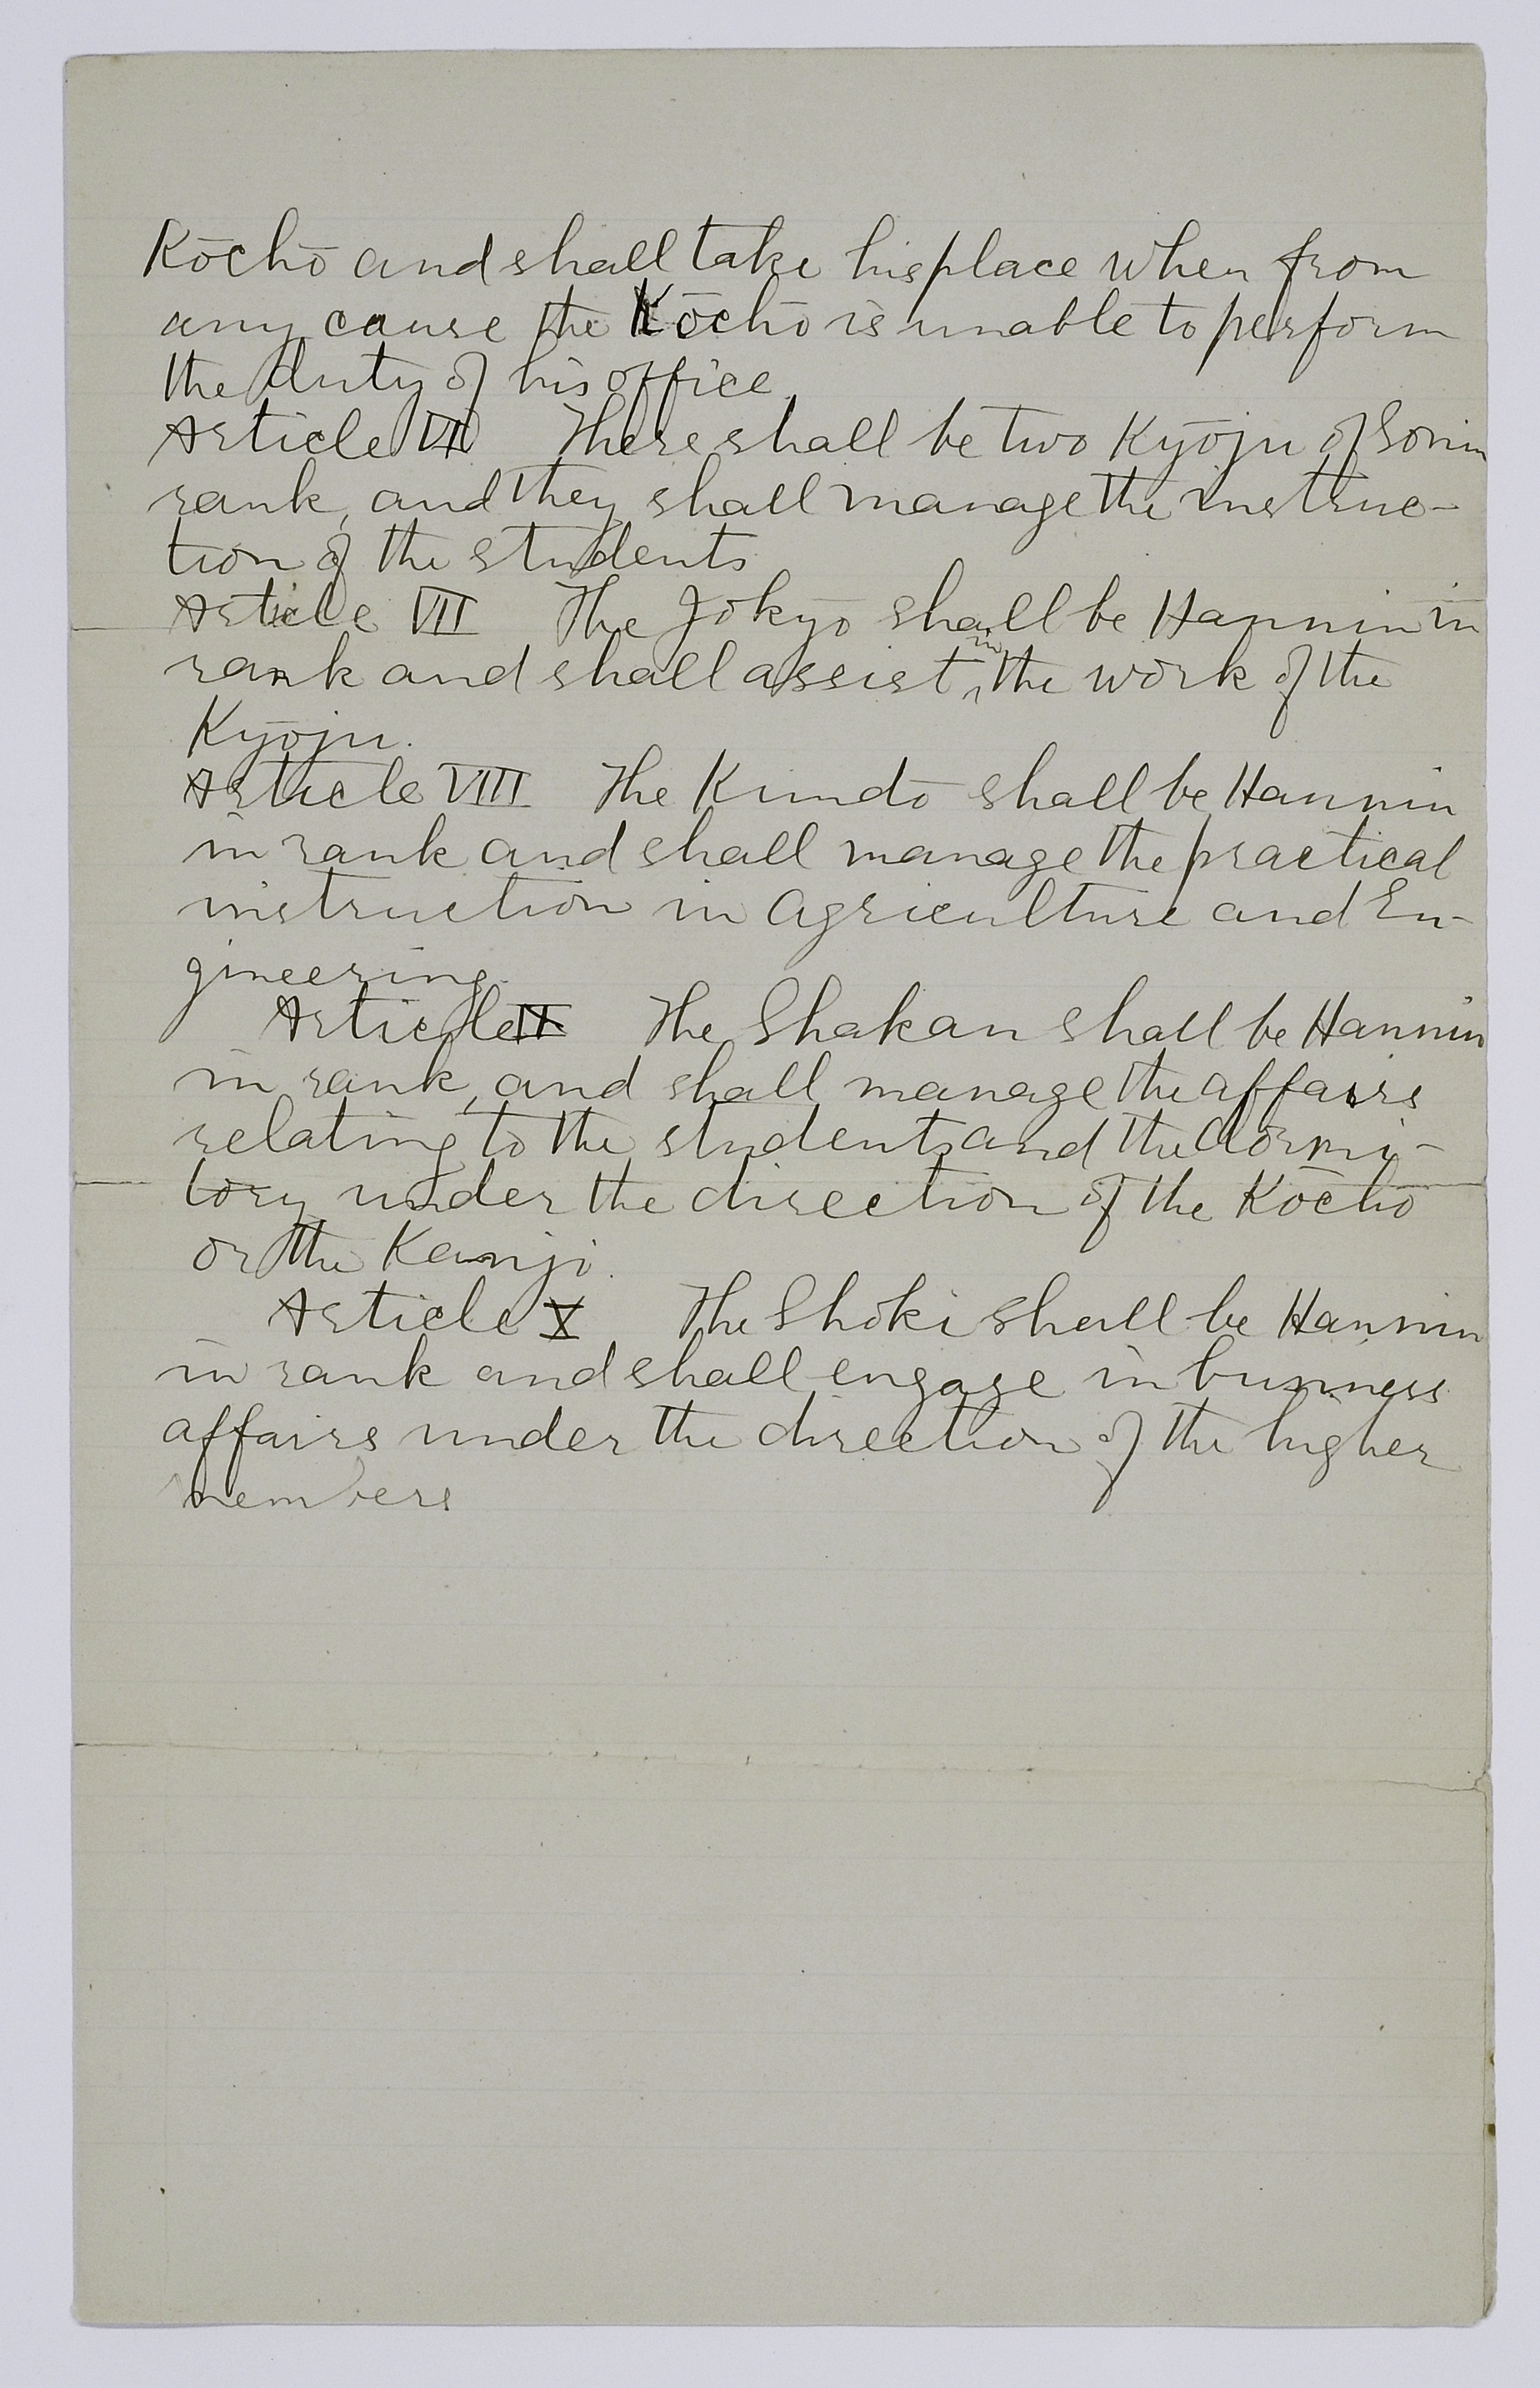 Kōchō and shall take his place when from
any cause the Kōchō is unable to perform
the duty of his office.
Article VI There shall be two Kyōju of Sonin
rank, and they shall manage the instruc-
tion of the students
Article VII The Jokyo shall be Hannin in
rank and shall assist in the work of the
Kyōju.
Article VIII The Kundō shall be Hannin
in rank and shall manage the practical
instruction in Agriculture and En-
gineering.
Article IX The Shakan shall be Hannin
in rank, and shall manage the affairs
relating to the students and the dormi-
tory under the direction of the Kōchō
or the Kanji.
Article X The Shoki shall be Hannin
in rank and shall engage in business
affairs under the direction of the higher
members